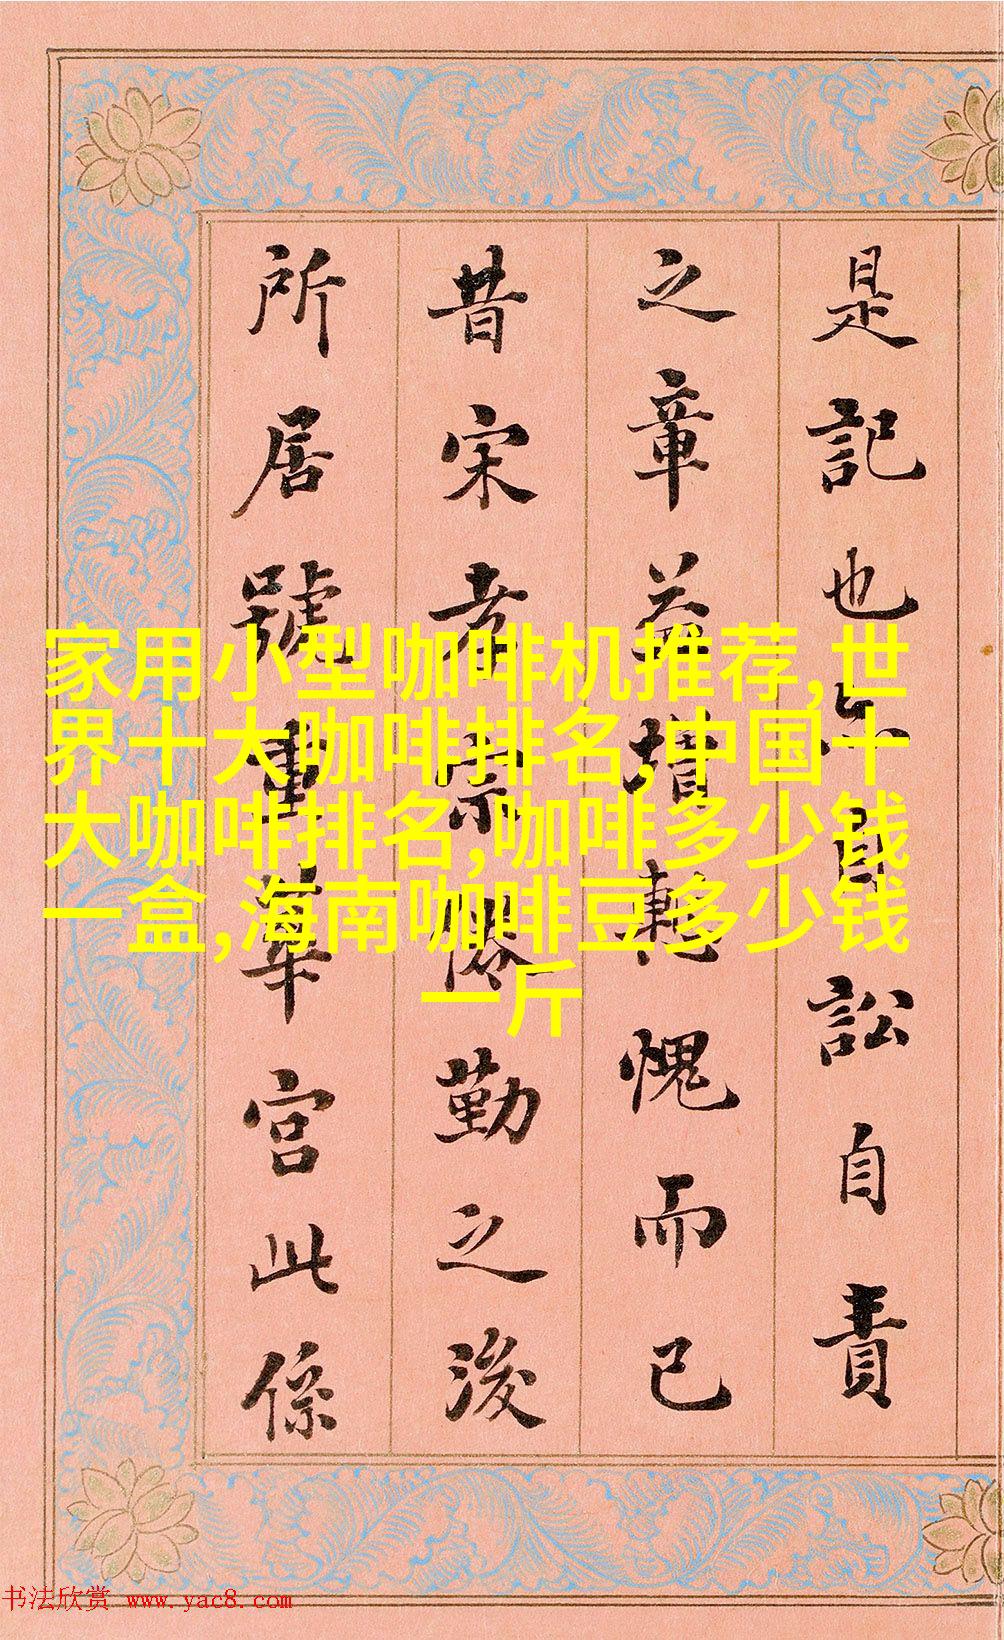 是記也亦自訟自責
之章益增慙愧而已
昔宋孝宗倦勤之後
所居號重華宮此係
家用小型咖啡机推荐,世
界十大咖啡排名,中国十
大咖啡排名,咖啡多少钱
一盒,海南咖啡豆多少钱
一斤
书法欣赏 www.yac8.com